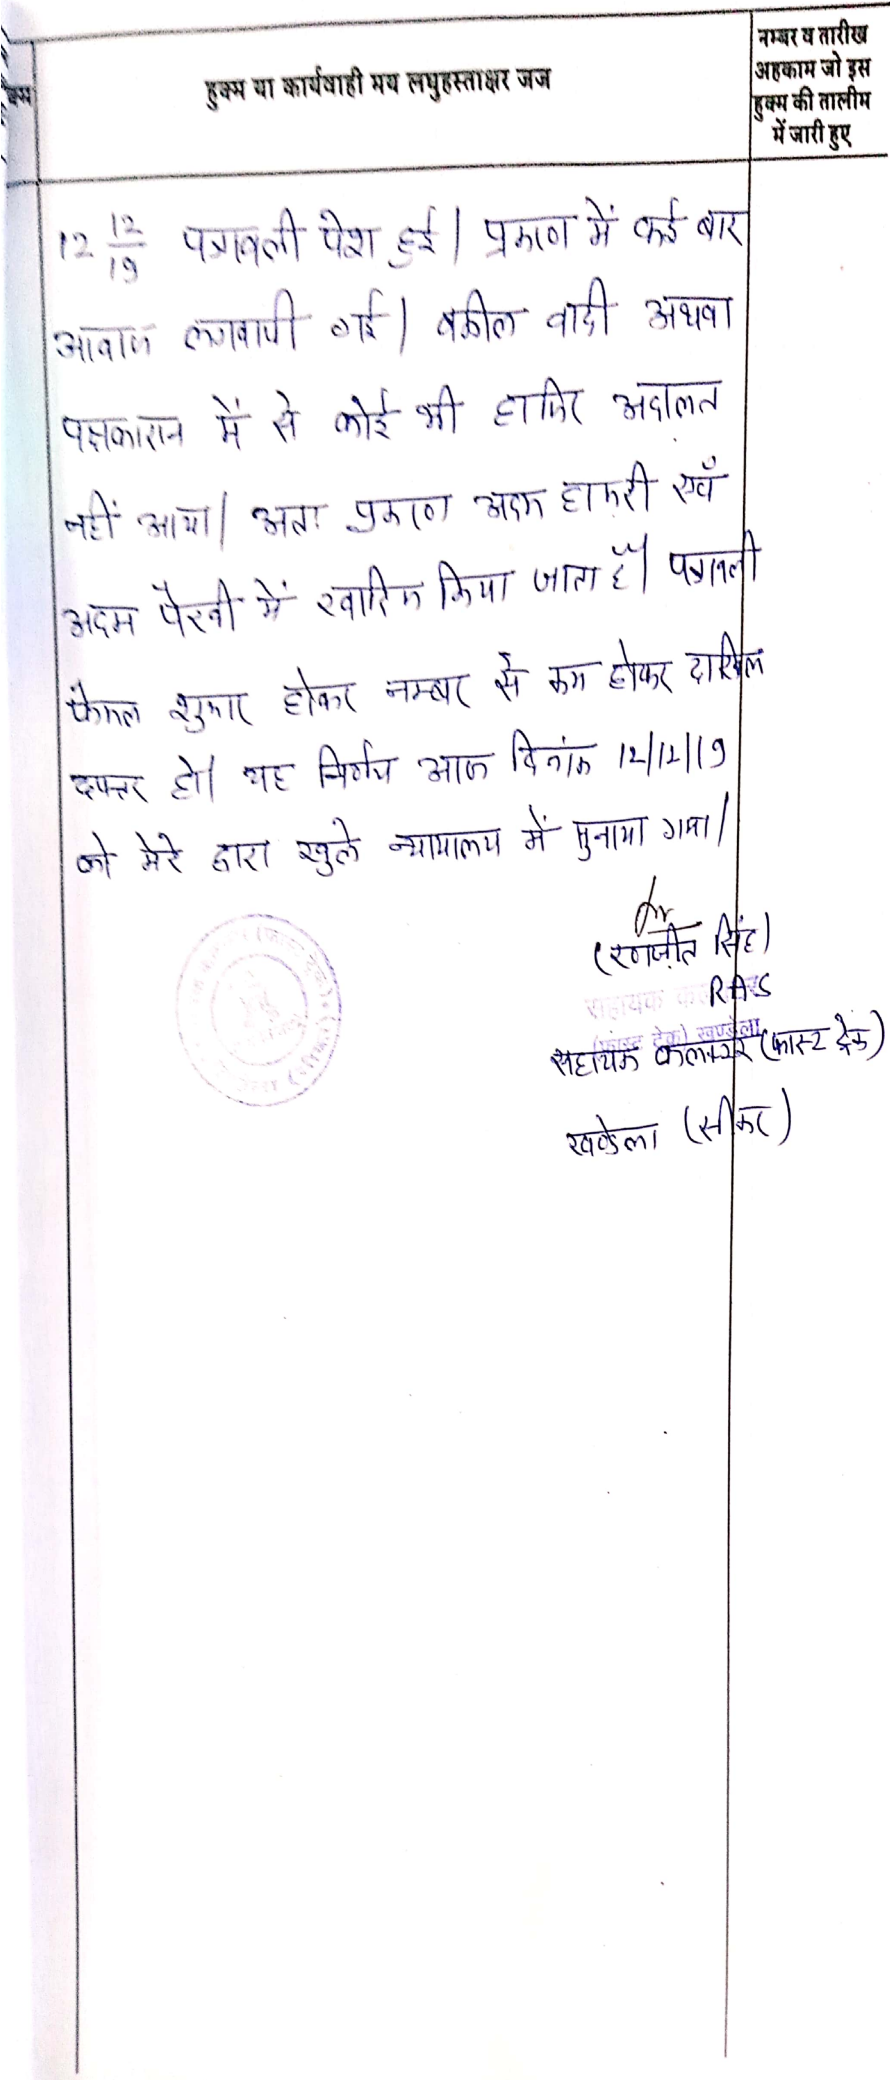 क्म
हुक्म या कार्यवाही मय लघुहस्ताक्षर जज
नम्बर व तारीख
अहकाम जो इस
हुक्म की तालीम
में जारी हुए
12 12/19 पत्रावली पेश हुई। प्रकरण में कई बार
आवाज लगवायी गई। वकील वादी अथवा
पक्षकारान में से कोई भी हाजिर अदालत
नहीं आया। अतः प्रकरण अदम हाजरी एवँ
अदम पैरवी में खारिज किया जाता है। पत्रावली
फैसल शुमार होकर नम्बर से कम होकर दाखिल
दफ्तर हो। यह निर्णय आज दिनांक 12/12/19
को मेरे द्वारा खुले न्यायालय में सुनाया गया।
(रणजीत सिंह)
RAS
सहायक
(फास्ट ट्रेक) खण्डेला
सहायक कलक्टर (फास्ट ट्रेक)
खण्डेला (सीकर)